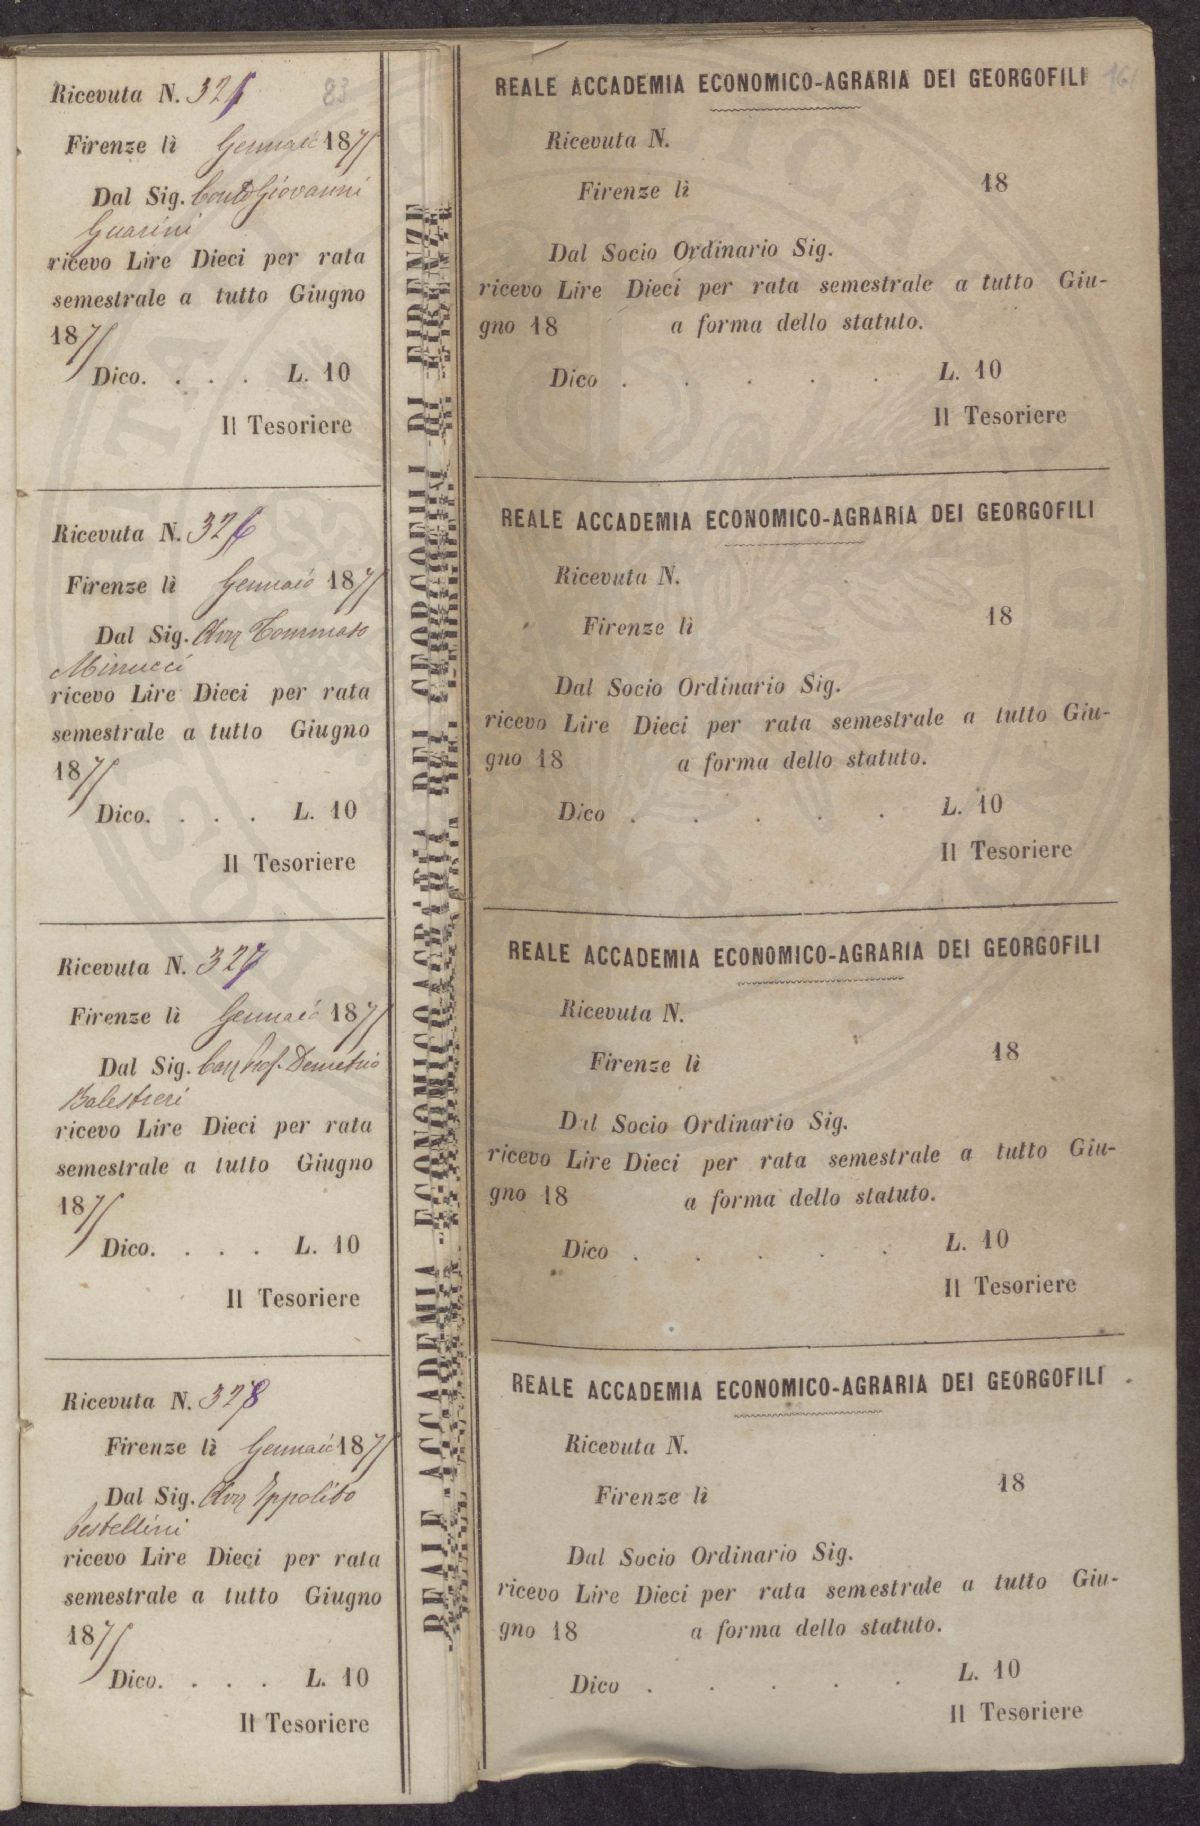 Ricevuta N. 325 83
Firenze lì Gennaio 1875
Dal Sig. Conte Giovanni
Guarini
ricevo Lire Dieci per rata
semestrale a tutto Giugno
1875
Dico. . . . L. 10
Il Tesoriere
Ricevuta N. 326
Firenze lì Gennaio 1875
Dal Sig. Avv Tommaso
Minucci
ricevo Lire Dieci per rata
semestrale a tutto Giugno
1875
Dico. . . . L. 10
Il Tesoriere
Ricevuta N. 327
Firenze lì Gennaio 1875
Dal Sig. Cav Prof. Demetrio
Balestrieri
ricevo Lire Dieci per rata
semestrale a tutto Giugno
1875
Dico. . . . L. 10
Il Tesoriere
Ricevuta N. 328
Firenze lì Gennaio 1875
Dal Sig. Avv Ippolito
Pestellini
ricevo Lire Dieci per rata
semestrale a tutto Giugno
1875
Dico. . . . L. 10
Il Tesoriere
REALE ACCADEMIA ECONOMICO-AGRARIA DEI GEORGOFILI DI FIRENZE
REALE ACCADEMIA ECONOMICO-AGRARIA DEI GEORGOFILI 161
Ricevuta N.
Firenze lì 18
Dal Socio Ordinario Sig.
ricevo Lire Dieci per rata semestrale a tutto Giu-
gno 18 a forma dello statuto.
Dico . . . . . L. 10
Il Tesoriere
REALE ACCADEMIA ECONOMICO-AGRARIA DEI GEORGOFILI
Ricevuta N.
Firenze lì 18
Dal Socio Ordinario Sig.
ricevo Lire Dieci per rata semestrale a tutto Giu-
gno 18 a forma dello statuto.
Dico . . . . . L. 10
Il Tesoriere
REALE ACCADEMIA ECONOMICO-AGRARIA DEI GEORGOFILI
Ricevuta N.
Firenze lì 18
Dal Socio Ordinario Sig.
ricevo Lire Dieci per rata semestrale a tutto Giu-
gno 18 a forma dello statuto.
Dico . . . . . L. 10
Il Tesoriere
REALE ACCADEMIA ECONOMICO-AGRARIA DEI GEORGOFILI
Ricevuta N.
Firenze lì 18
Dal Socio Ordinario Sig.
ricevo Lire Dieci per rata semestrale a tutto Giu-
gno 18 a forma dello statuto.
Dico . . . . . L. 10
Il Tesoriere